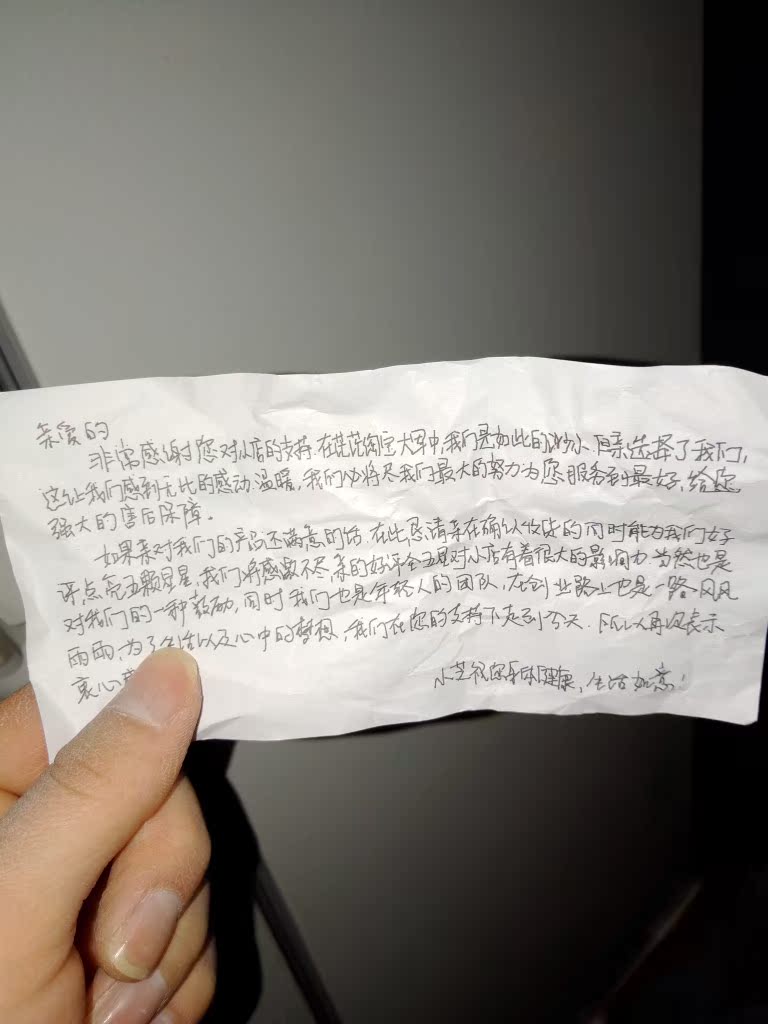 亲爱的
非常感谢您对小店的支持.在茫茫淘宝大军中,我们是如此的渺小.但亲选择了我们,
这让我们感到无比的感动.温暖,我们必将尽我们最大的努力为您服务到最好,给您
强大的售后保障。
如果亲对我们的产品还满意的话.在此恳请亲在确认收货的同时能为我们好
评,点亮五颗星星,我们将感激不尽.亲的好评全五星对小店有着很大的影响力当然也是
对我们的一种鼓励,同时我们也是年轻人的团队.在创业路上也是一路风风
雨雨,为了生活以及心中的梦想,我们在您的支持下走到今天.所以再次表示
衷心感
小芝祝您身体健康,生活如意!